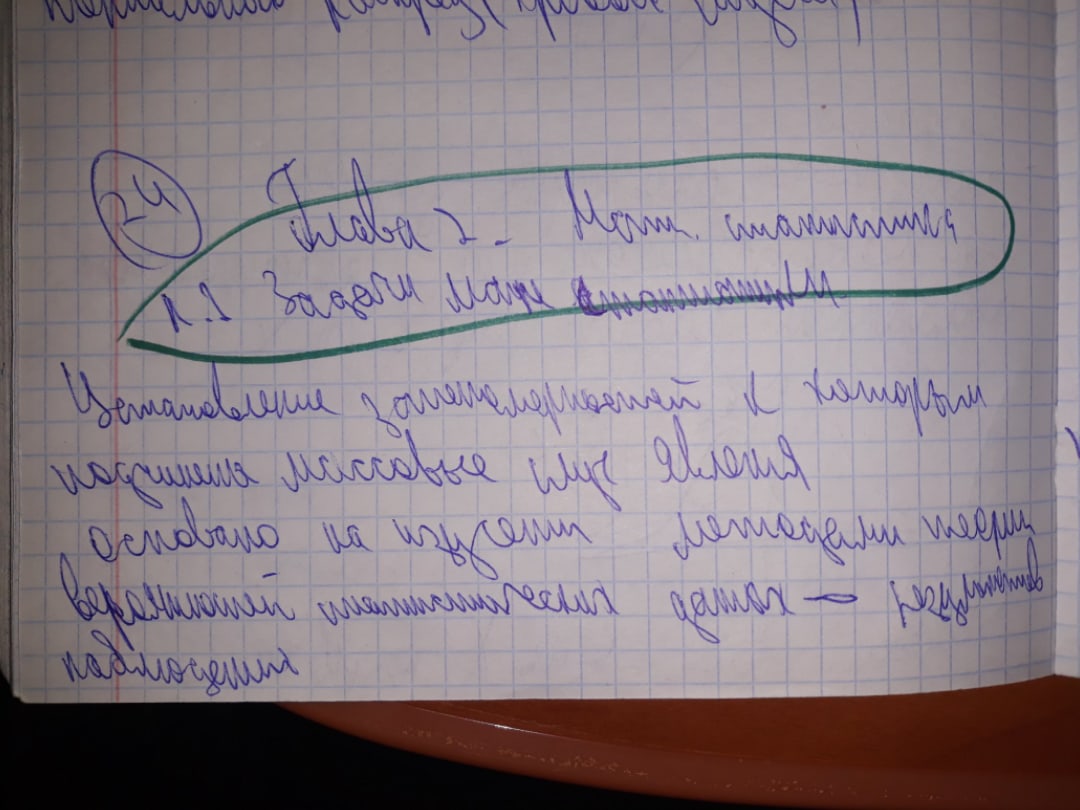 24
Глава 2. Мат. статистика
п.1 Задачи мат статистики
Установление закономерностей к которым
подчинены массовые случ явления
основано на изучении методами теории
вероятностей статистических данных — результатов
наблюдения